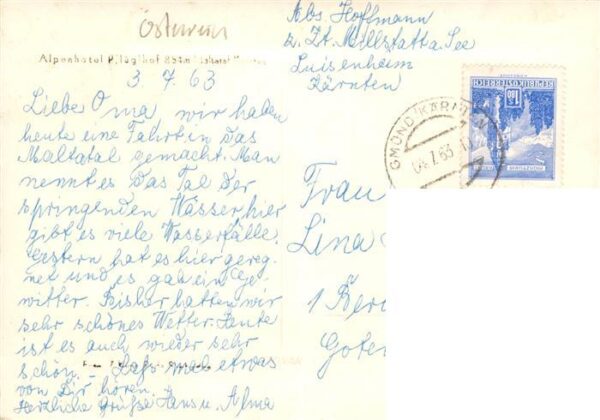 Österreich
Alpenhotel Pflüglhof 851m Maltatal Kärnten
3.7.63
Liebe Oma, wir haben
heute eine Fahrt in das
Maltatal gemacht. Man
nennt es das Tal der
springenden Wasser, hier
gibt es viele Wasserfälle.
Gestern hat es hier gereg-
net und es gab ein Ge-
witter. Bisher hatten wir
sehr schönes Wetter. Heute
ist es auch wieder sehr
schön. - Laß mal etwas
von Dir hören.
Herzliche Grüße Hans u. Alma
Abs. Hoffmann
z. Zt. Millstatt a. See
Luisenheim
Kärnten
REPUBLIK ÖSTERREICH
GMÜND KÄRNTEN
04.7.63
Frau
Lina
1 Ber
Goten